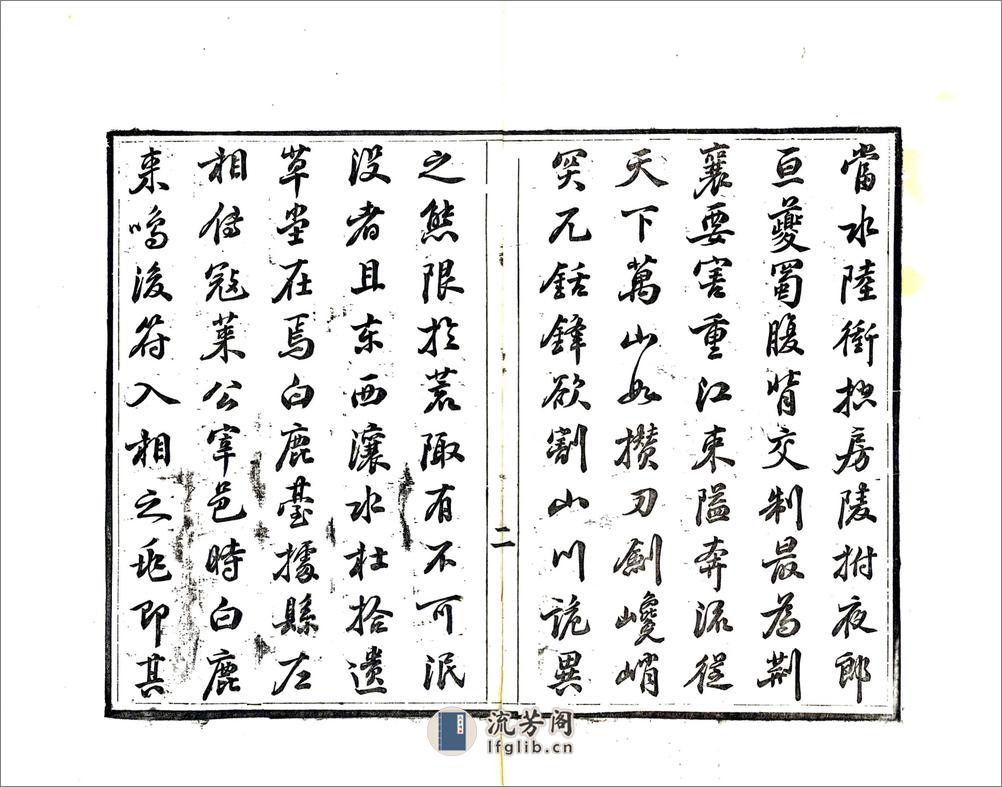 當水陸衝控房陵拊夜郎
亘夔蜀腹背交制最為荆
襄要害重江束隘奔流從
天下萬山如攢刀劍巉峭
突兀銛鋒欲割山川詭異
之態限扵荒陬有不可泯
没者且东西瀼水杜拾遺
草堂在焉白鹿臺據縣左
相傳冦莱公宰邑時白鹿
来鳴後符入相之兆即其
二
流芳阁
lfglib.cn